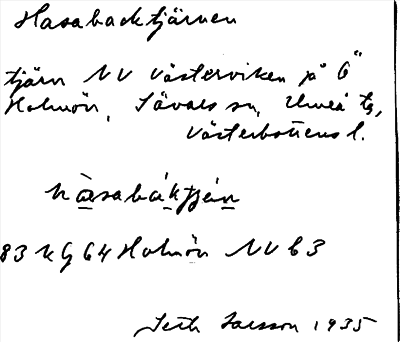 Hasabacktjärnen
tjärn NV Västerviken på "G"
Holmön, Sävars sn, Umeå ts,
Västerbottens l.
83 KG 64 Holmön NV b 3
Seth Larsson 1935